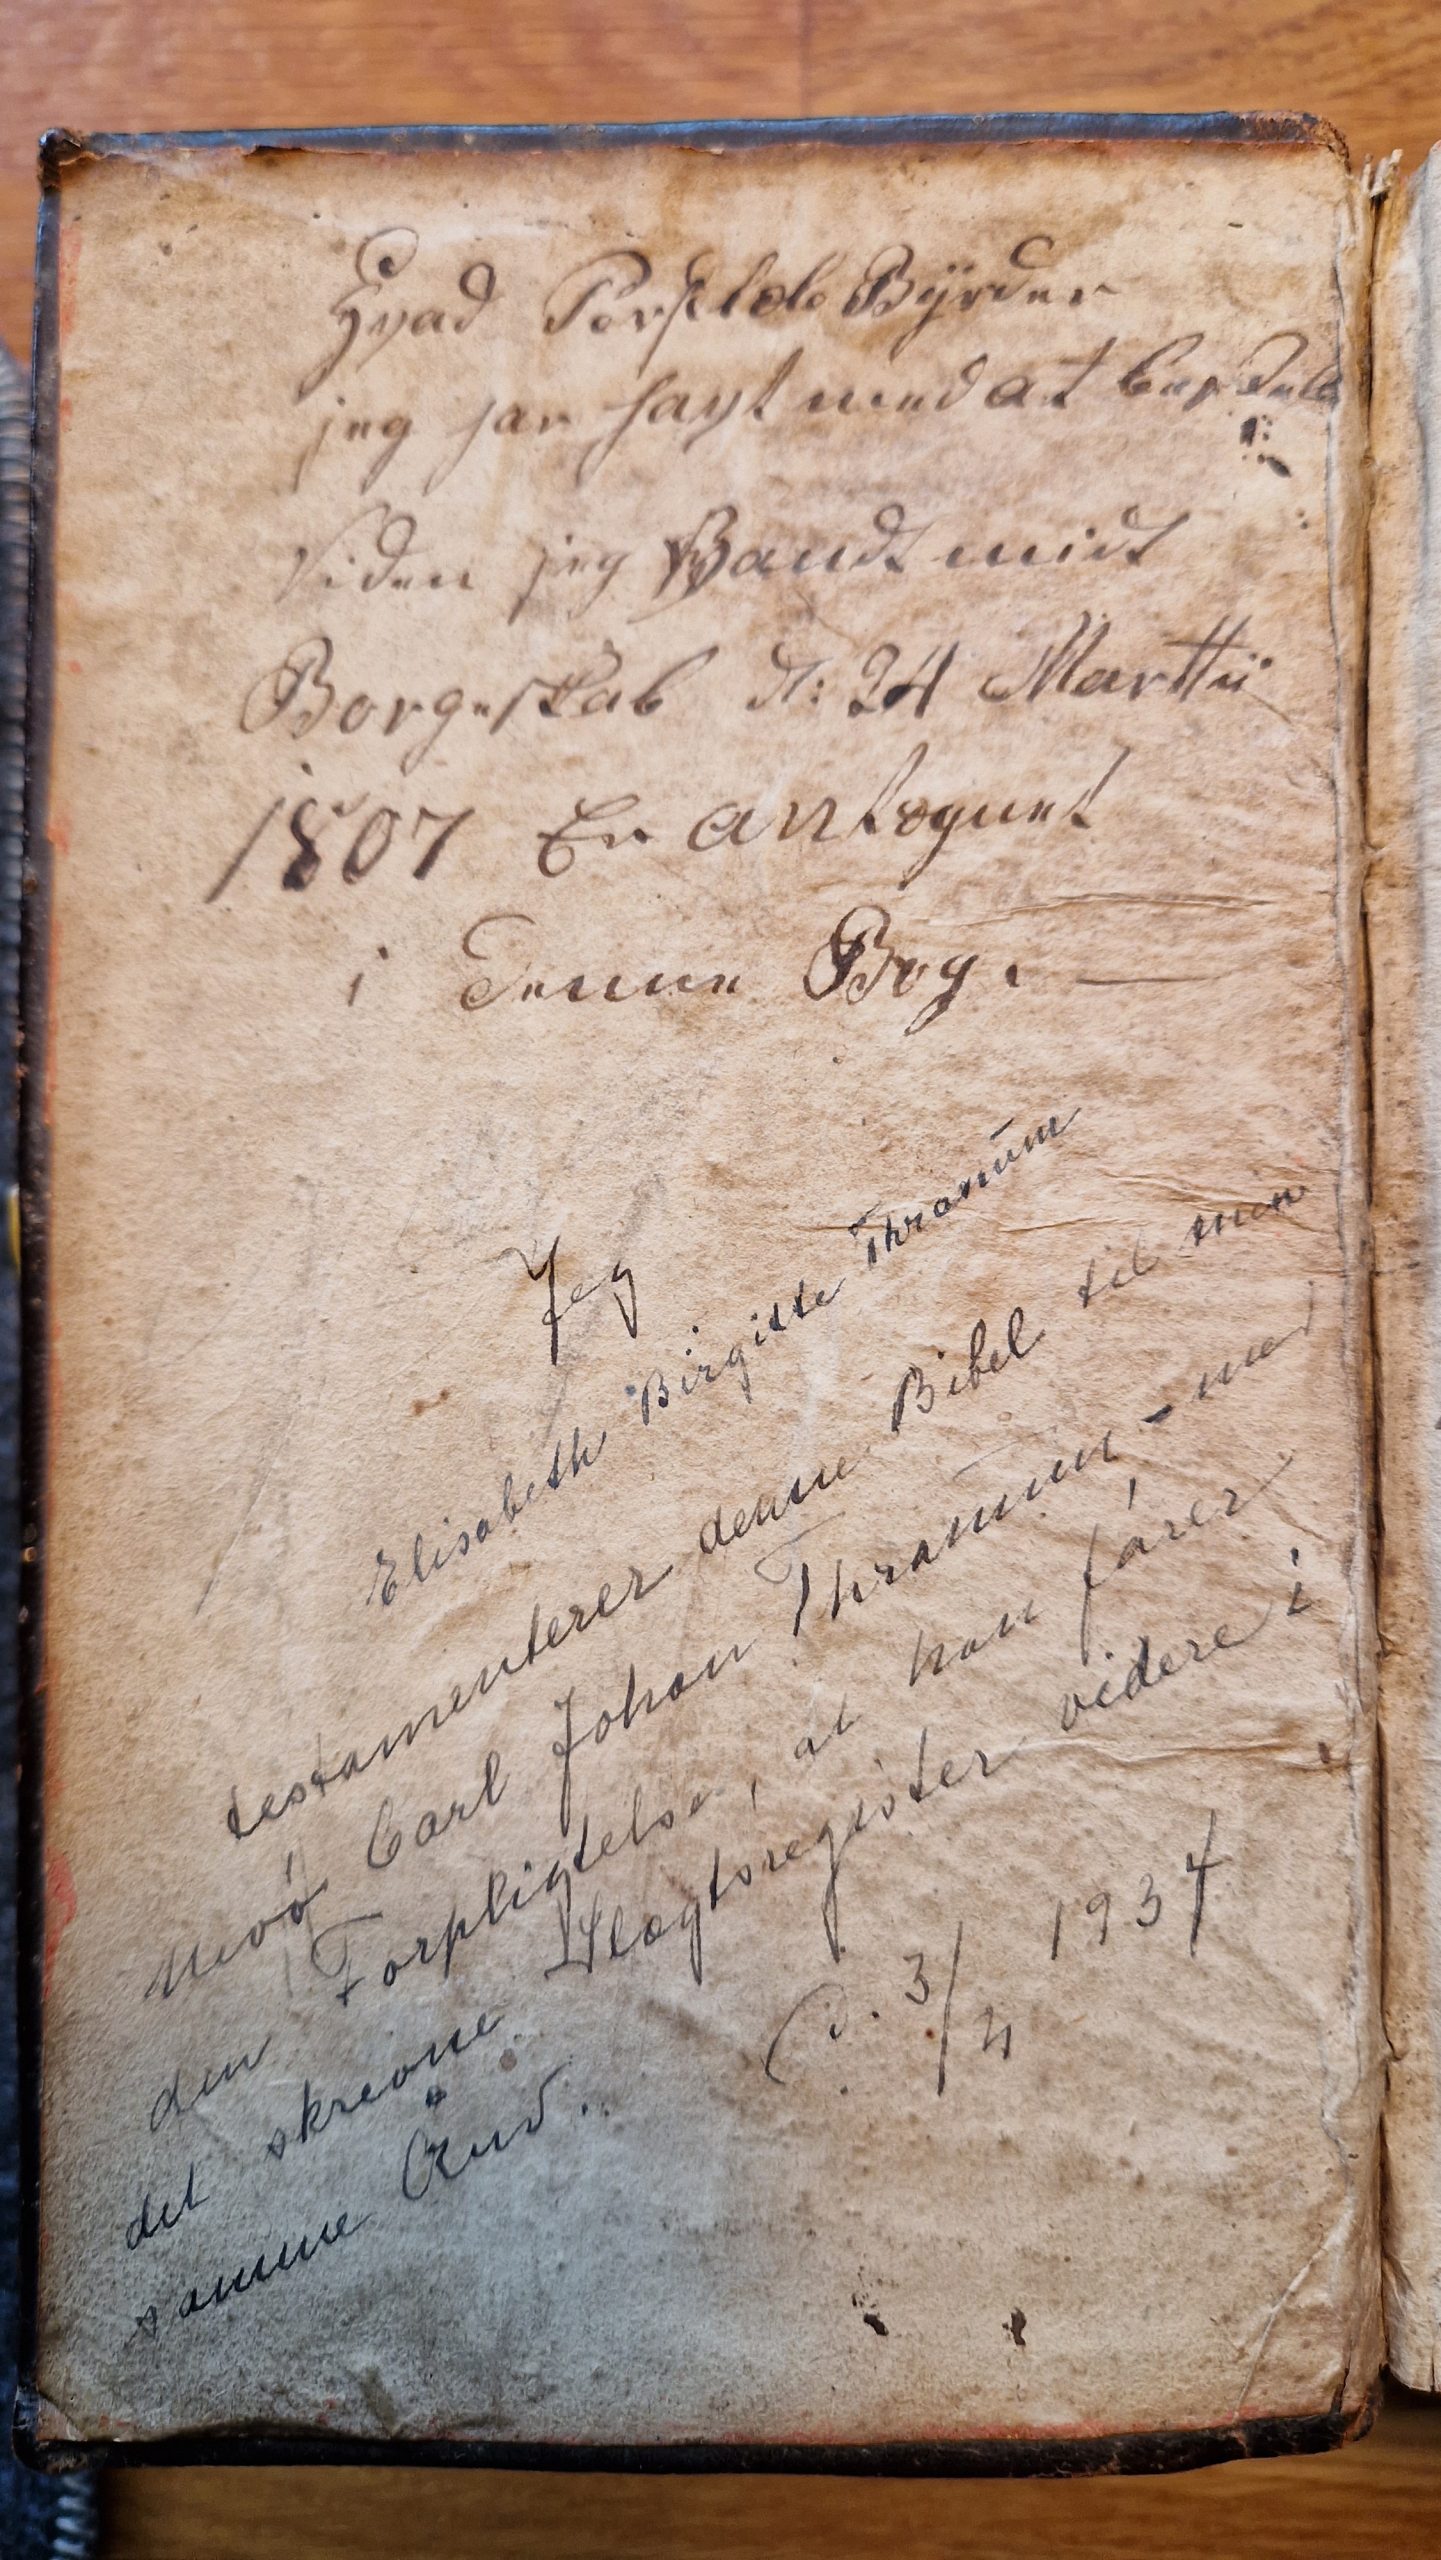 Hvad Personlele Byrder
jeg har hagt med at betale
siden jeg Vandt midt
Borgerskab d: 24 Marttii
1807 Er antegnet
i denne Bog. —
Jeg
Elisabeth Birgitte Thranum
testamenterer denne Bibel til min
Nevø Carl Johan Thranum - med
den Forpligtelse, at han fører
det skrevne Slægtsregister videre i
samme Aand.
d. 3/4 1934